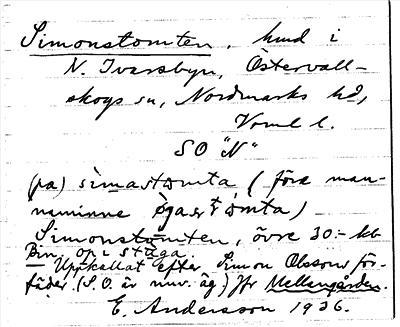 Simonstomten, hmd i
N. Ivarsbyn, Östervall-
skogs sn, Nordmarks hd,
Vrml l.
SO "N"
(pa) simastomta (före man-
naminne øgaستomta)
Simonstomten, övre 30:- kb
Bm, op i stuga
Uppkallat efter Simon Olssons för-
fäder. (S.O. är nuv. äg.) Jfr Mellangården.
E. Andersson 1936.